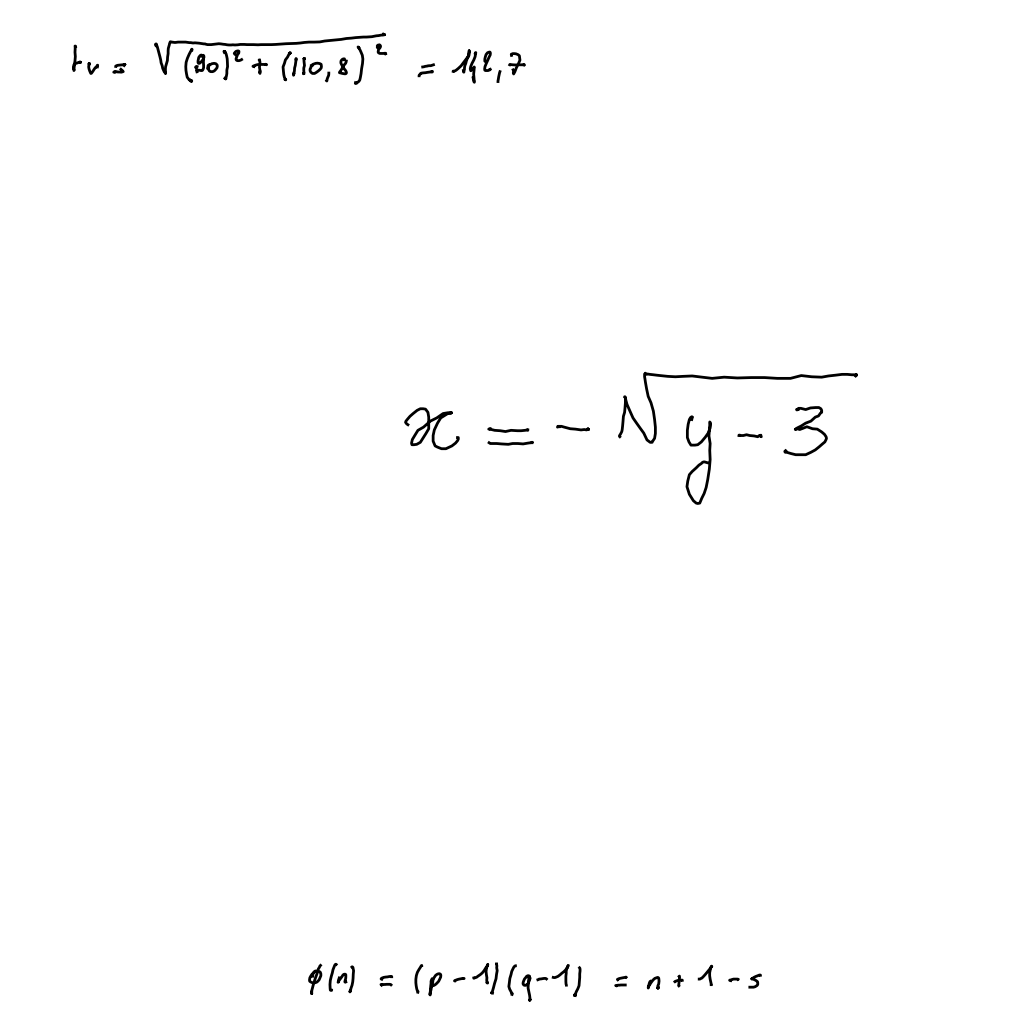 t_v = √((90)² + (110,8)²) = 142,7
x = -√(y - 3)
ϕ(n) = (p - 1)(q - 1) = n + 1 - s